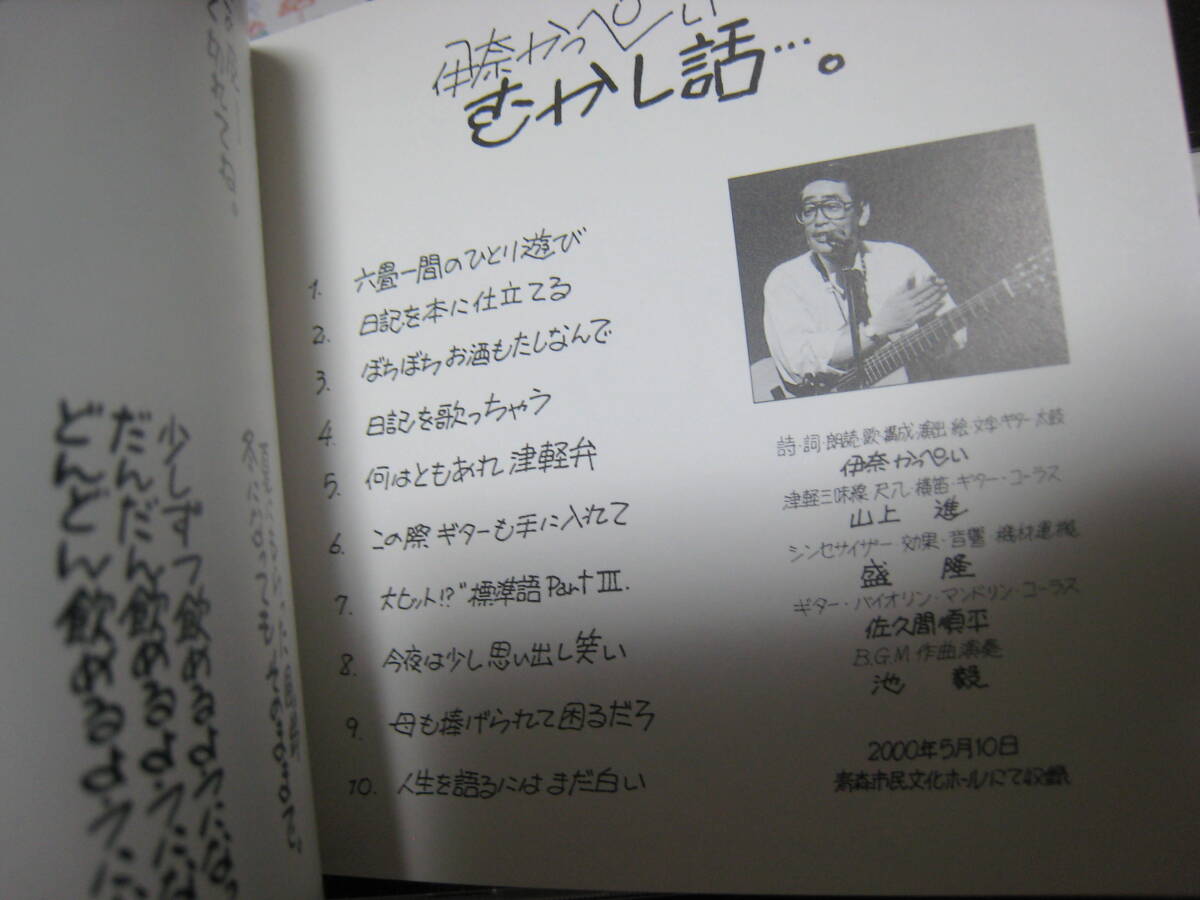 伊奈かっぺい
むかし話…。
1. 六畳一間のひとり遊び
2. 日記を本に仕立てる
3. ぼちぼちお酒もたしなんで
4. 日記を歌っちゃう
5. 何はともあれ津軽弁
6. この際ギターも手に入れて
7. 大ヒット!?"標準語PartⅢ.
8. 今夜は少し思い出し笑い
9. 母も捧げられて困るだろ
10. 人生を語るにはまだ白い
詩・詞・朗読・歌・構成・演出・絵・文字・ギター・太鼓
伊奈かっぺい
津軽三味線・尺八・横笛・ギター・コーラス
山上 進
シンセサイザー・効果・音響・機材運搬
盛 隆
ギター・バイオリン・マンドリン・コーラス
佐久間順平
B.G.M 作曲演奏
池 毅
2000年5月10日
青森市民文化ホールにて収録
少しずつ飲めるようになっ
だんだん飲めるようにな
どんどん飲めるように